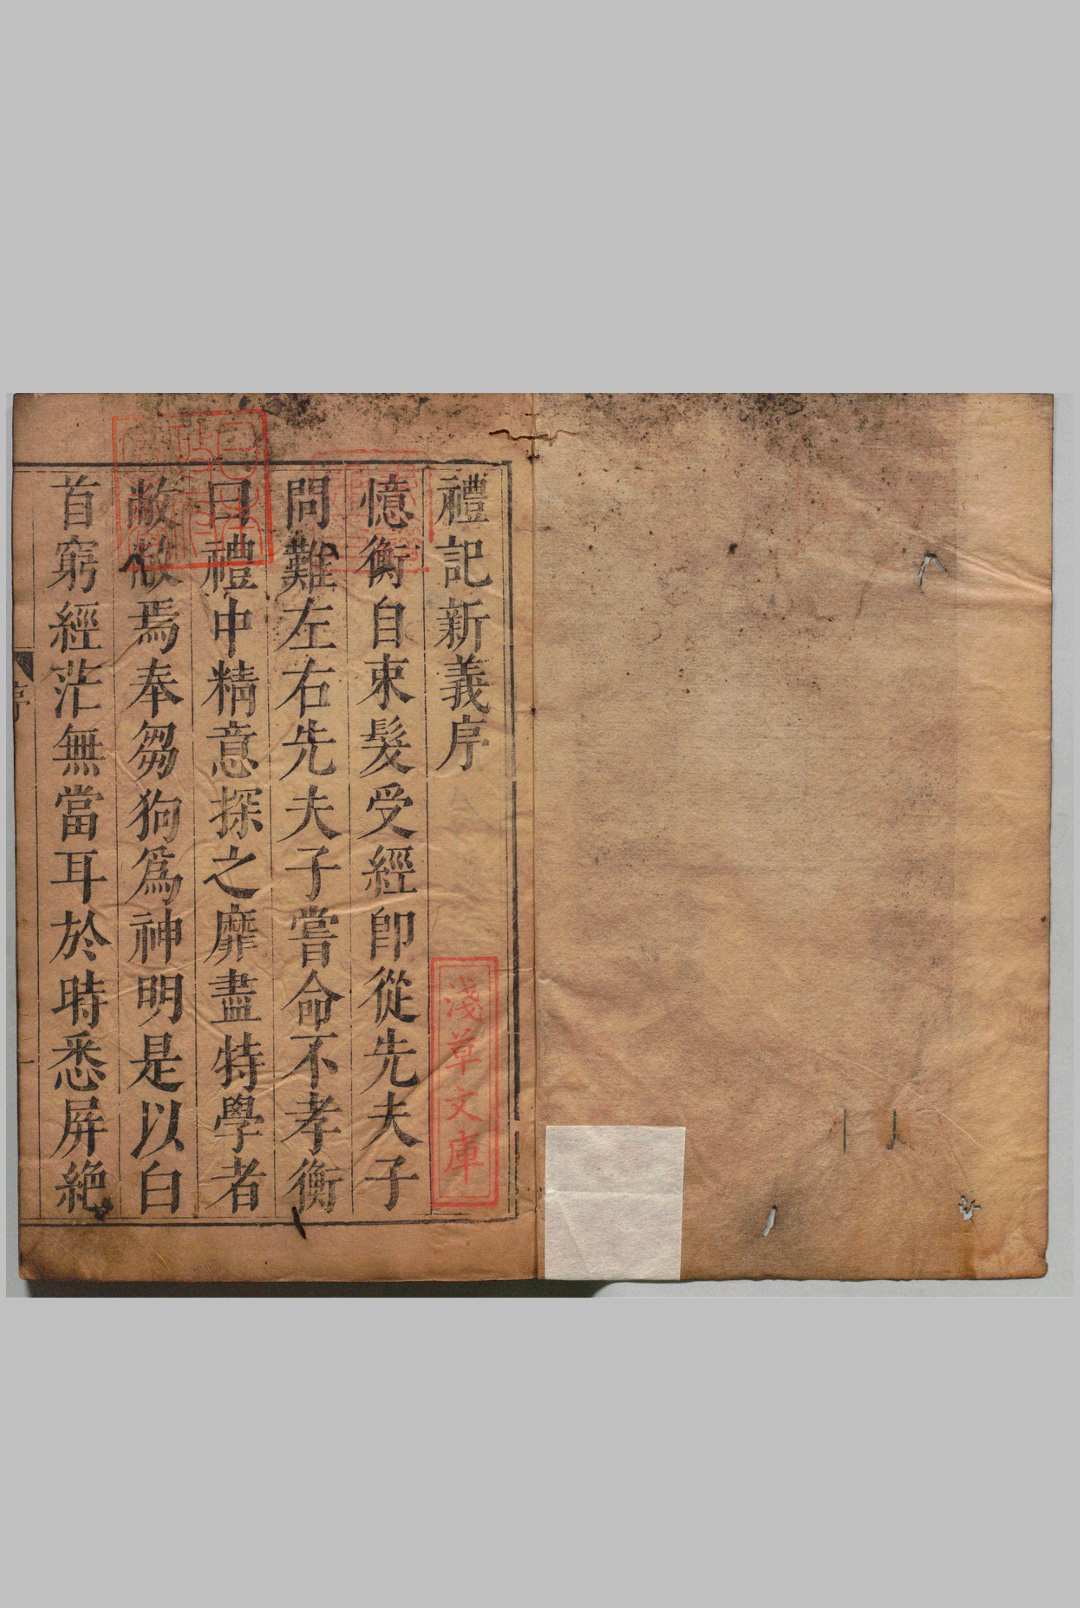 禮記新義序
淺草文庫
憶衡自束髮受經即從先夫子
問難左右先夫子嘗命不孝衡
曰禮中精意探之靡盡特學者
敝敝焉奉芻狗爲神明是以白
首窮經茫無當耳於時悉屏絶
序
一